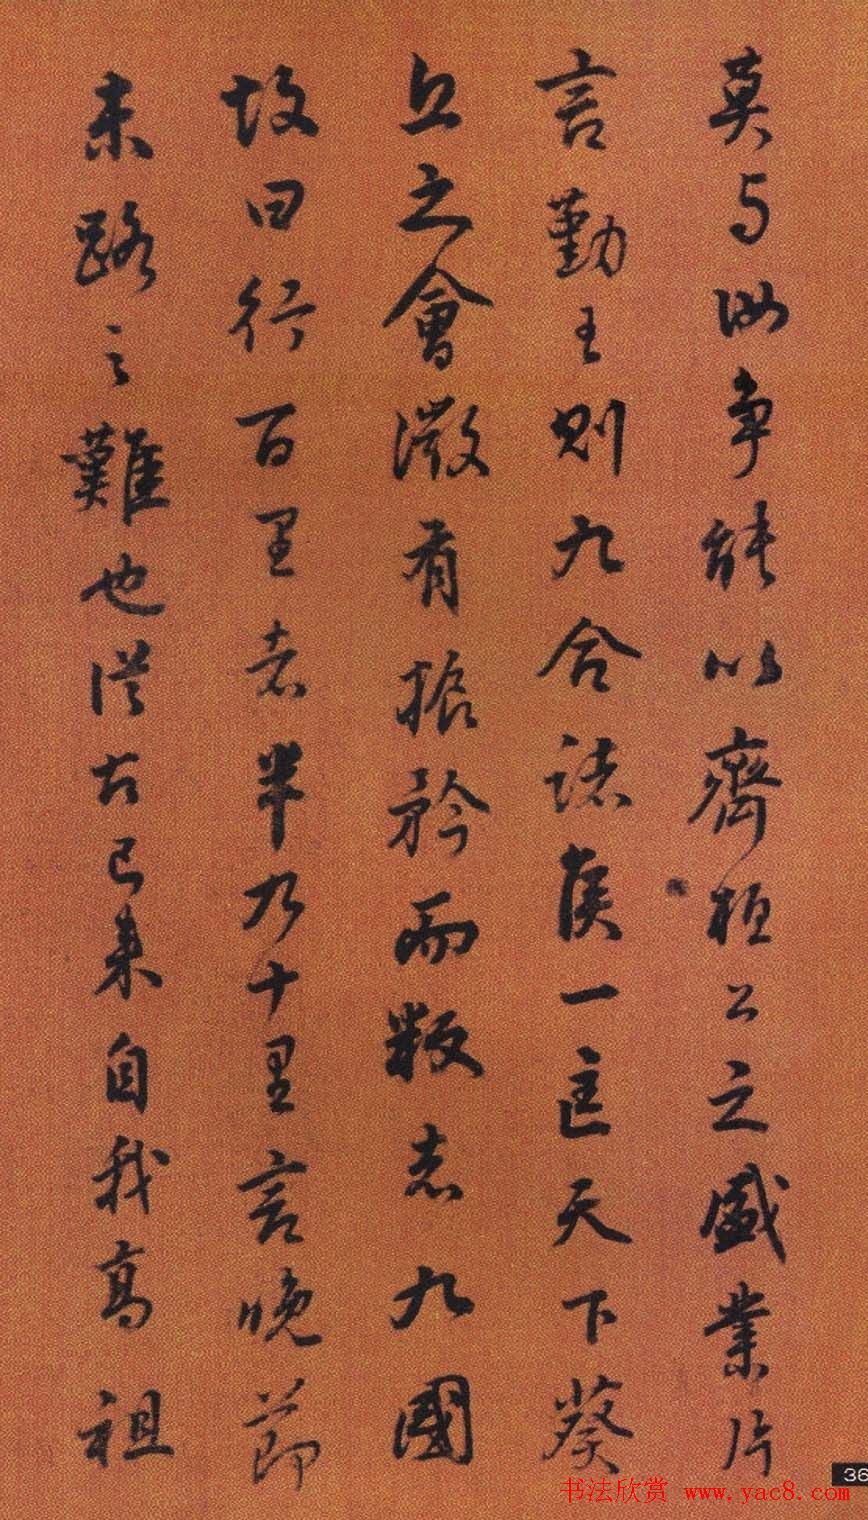 莫与汝争能以齊桓公之盛業片
言勤王則九合諸侯一匡天下葵
丘之會微有振矜而叛者九國
故曰行百里者半九十里言晚節
末路之難也從古已來自我高祖
36
书法欣赏 www.yac8.com